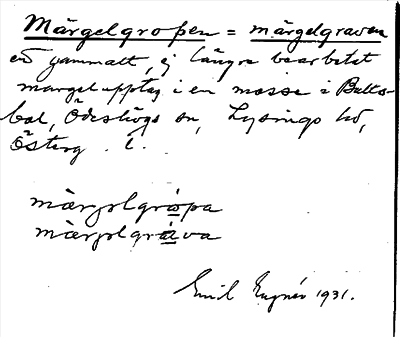 Märgelgropen = märgelgraven
ett gammalt, ej längre bearbetat
märgelupptag i en mosse i Bults-
bol, Ödeshögs sn, Lysings hd,
Österg. l.
märgelgropa
märgelgrava
Emil Engnér 1931.